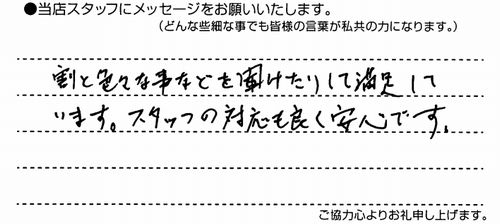 ●当店スタッフにメッセージをお願いいたします。
(どんな些細な事でも皆様の言葉が私共の力になります。)
割と色々な事などを聞けたりして満足して
います。スタッフの対応も良く安心です。
ご協力心よりお礼申し上げます。